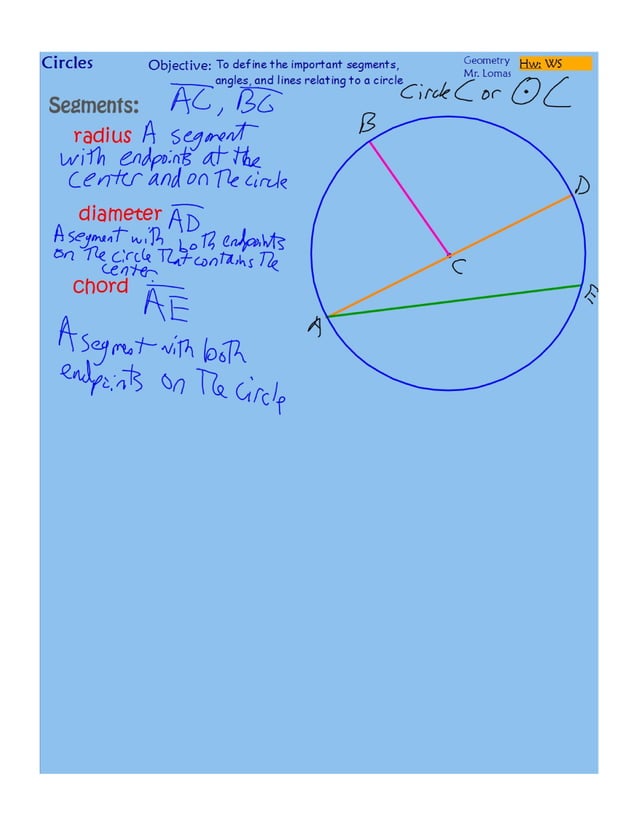 Circles
Objective: To define the important segments,
angles, and lines relating to a circle
Geometry
Mr. Lomas
Hw: WS
Segments:
AC, BC
Circle C or ⊙ C
radius A segment
with endpoints at the
center and on The circle
diameter AD
A segment with both endpoints
on The circle That contains The
center.
chord
AE
A segment with both
endpoints on The circle
B
D
C
E
A